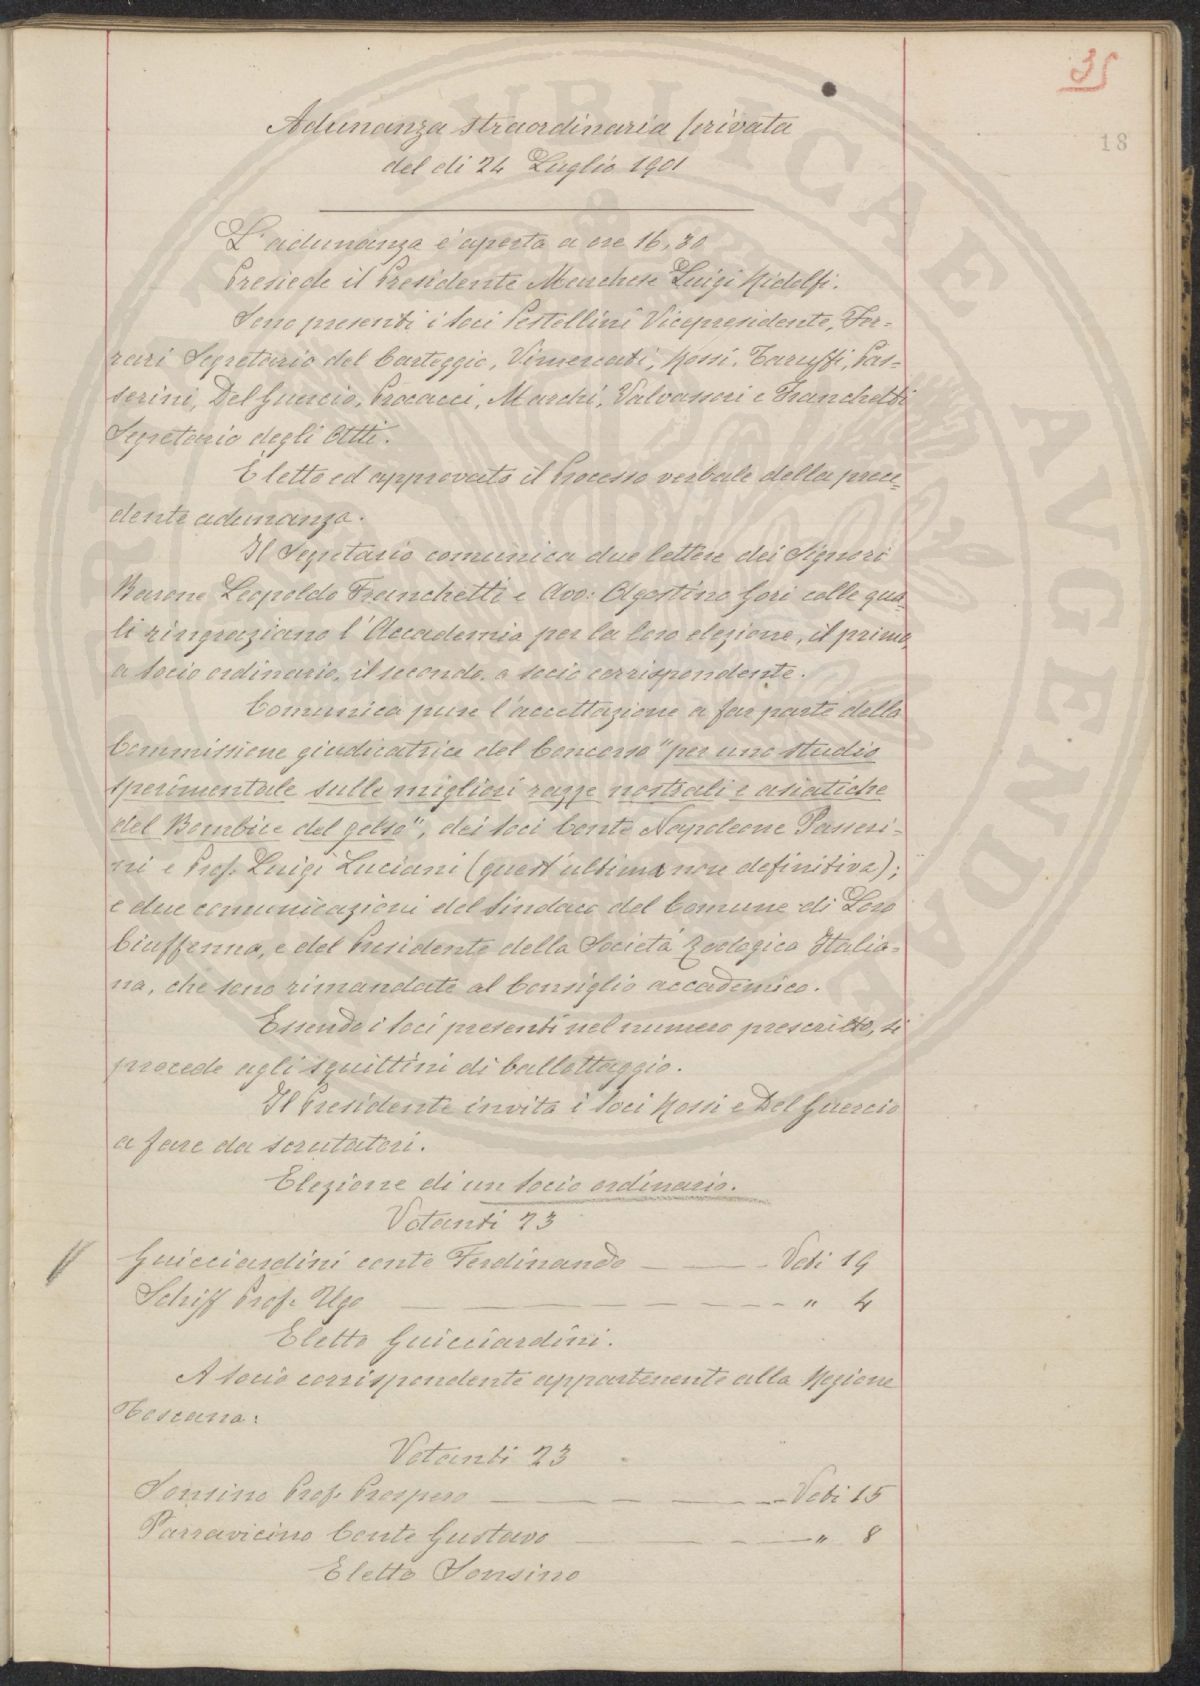 35
18
Adunanza straordinaria privata
del dì 24 Luglio 1901
L'adunanza è aperta a ore 16,30
Presiede il Presidente Marchese Luigi Ridolfi.
Sono presenti i soci Pestellini Vicepresidente, Fer-
rari Segretario del Carteggio, Vimercati, Rossi, Taruffi, Pas-
serini, Del Guercio, Procacci, Marchi, Valvassori e Franchetti
Segretario degli Atti.
È letto ed approvato il Processo verbale della prece-
dente adunanza.
Il Segretario comunica due lettere dei Signori
Barone Leopoldo Franchetti e Avv: Agostino Gori colle qua-
li ringraziano l'Accademia per la loro elezione, il primo,
a socio ordinario, il secondo, a socio corrispondente.
Comunica pure l'accettazione a far parte della
Commissione giudicatrice del Concorso "per uno studio
sperimentale sulle migliori razze nostrali e asiatiche
del Bombice del gelso", dei soci Conte Napoleone Passeri-
ni e Prof. Luigi Luciani (quest'ultima non definitiva);
e due comunicazioni del Sindaco del Comune di Loro
Ciuffenna, e del Presidente della Società Zoologica Italia-
na, che sono rimandate al Consiglio accademico.
Essendo i soci presenti nel numero prescritto, si
procede agli squittini di ballottaggio.
Il Presidente invita i soci Rossi e Del Guercio
a fare da scrutatori.
Elezione di un socio ordinario.
Votanti 23
Guicciardini conte Ferdinando — — — Voti 19
Schiff Prof. Ugo — — — — — — " 4
Eletto Guicciardini.
A socio corrispondente appartenente alla Regione
Toscana:
Votanti 23
Sonsino Prof. Prospero — — — — — Voti 15
Parravicino Conte Gustavo — — — — " 8
Eletto Sonsino